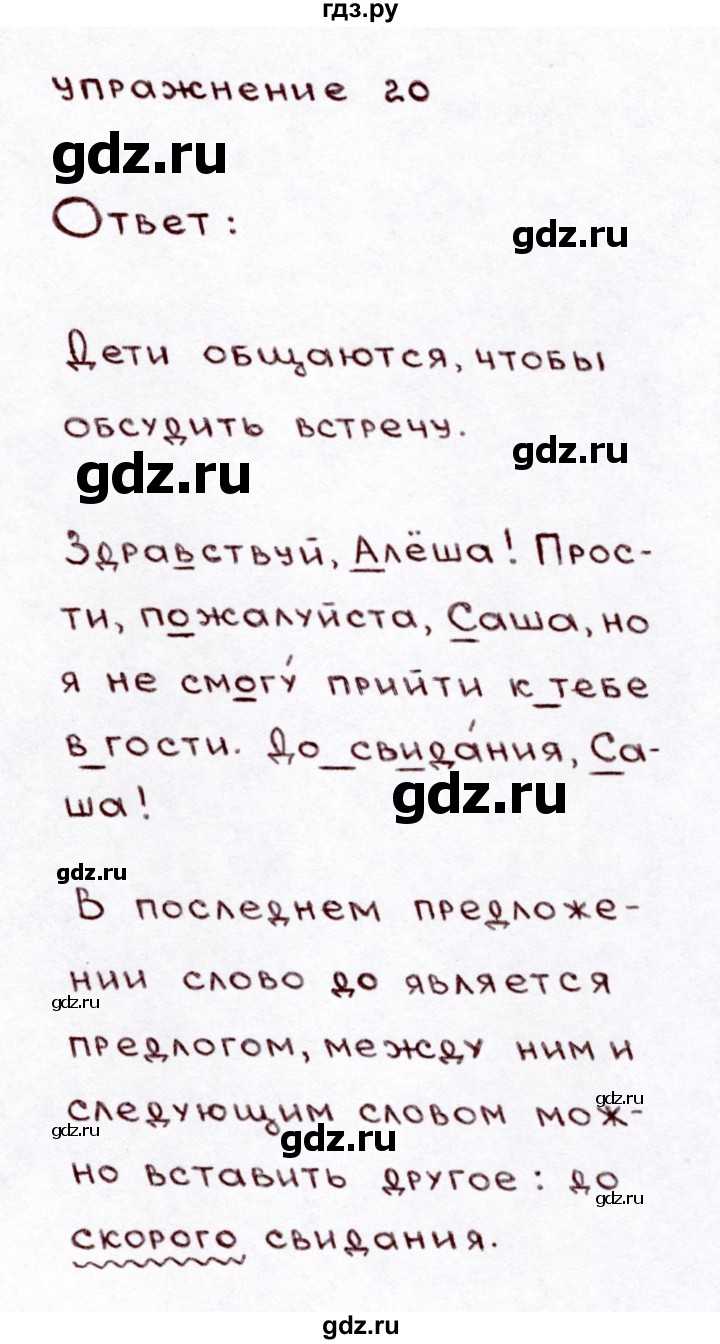 гдз.ру
упражнение 20
gdz.ru
Ответ:
gdz.ru
Дети общаются, чтобы
обсудить встречу.
gdz.ru
gdz.ru
Здравствуй, Алёша! Прос-
ти, пожалуйста, Саша, но
я не смогу́ прийти к_тебе
в_гости. До_свида́ния, Са-
gdz.ru
ша!
gdz.ru
В последнем предложе-
нии слово до является
gdz.ru
предлогом, между ним и
gdz.ru
следующим словом мож-
gdz.ru
gdz.ru
но вставить другое: до
gdz.ru
скорого свидания.
gdz.ru